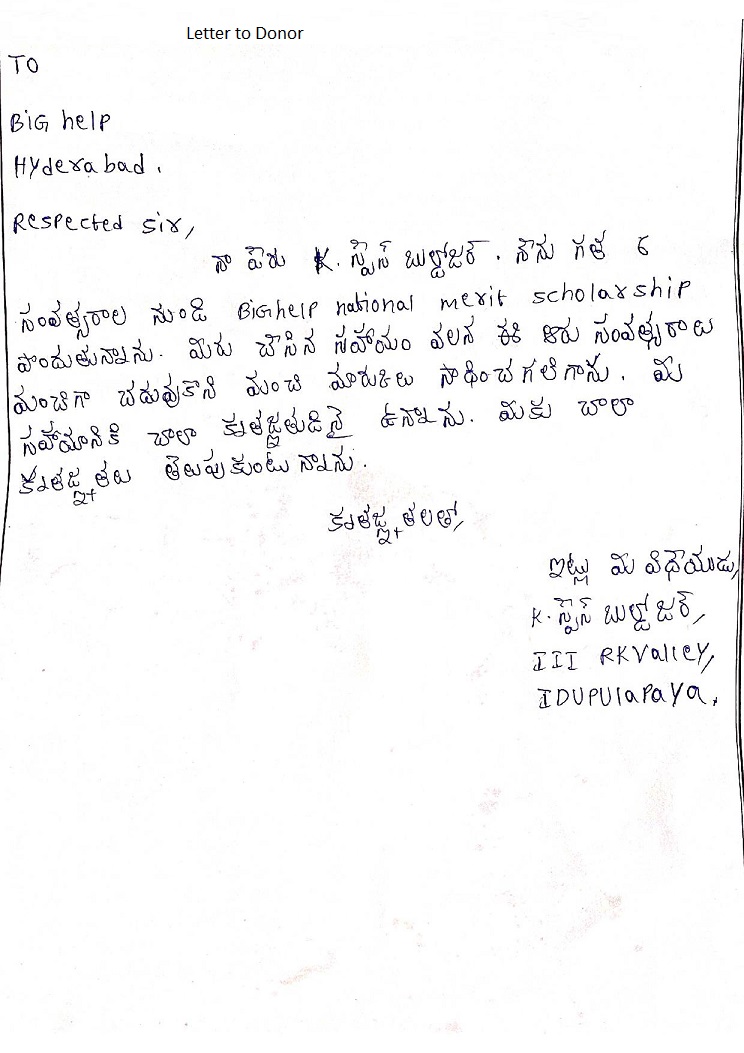 Letter to Donor
TO
BIG help
Hyderabad.
Respected sir,
నా పేరు K. స్పైస్ బుల్డోజర్. నేను గత 6
సంవత్సరాల నుండి BIG help national merit scholarship
పొందుతున్నాను. మీరు చేసిన సహాయం వలన ఈ ఆరు సంవత్సరాలు
మంచిగా చదువుకొని మంచి మార్కులు సాధించగలిగాను. మీ
సహాయానికి చాలా కృతజ్ఞతుడినై ఉన్నాను. మీకు చాలా
కృతజ్ఞతలు తెలుపుకుంటున్నాను.
కృతజ్ఞతలతో,
ఇట్లు మీ విధేయుడు,
K. స్పైస్ బుల్డోజర్,
III RKValley,
IDUPULAPAYA.